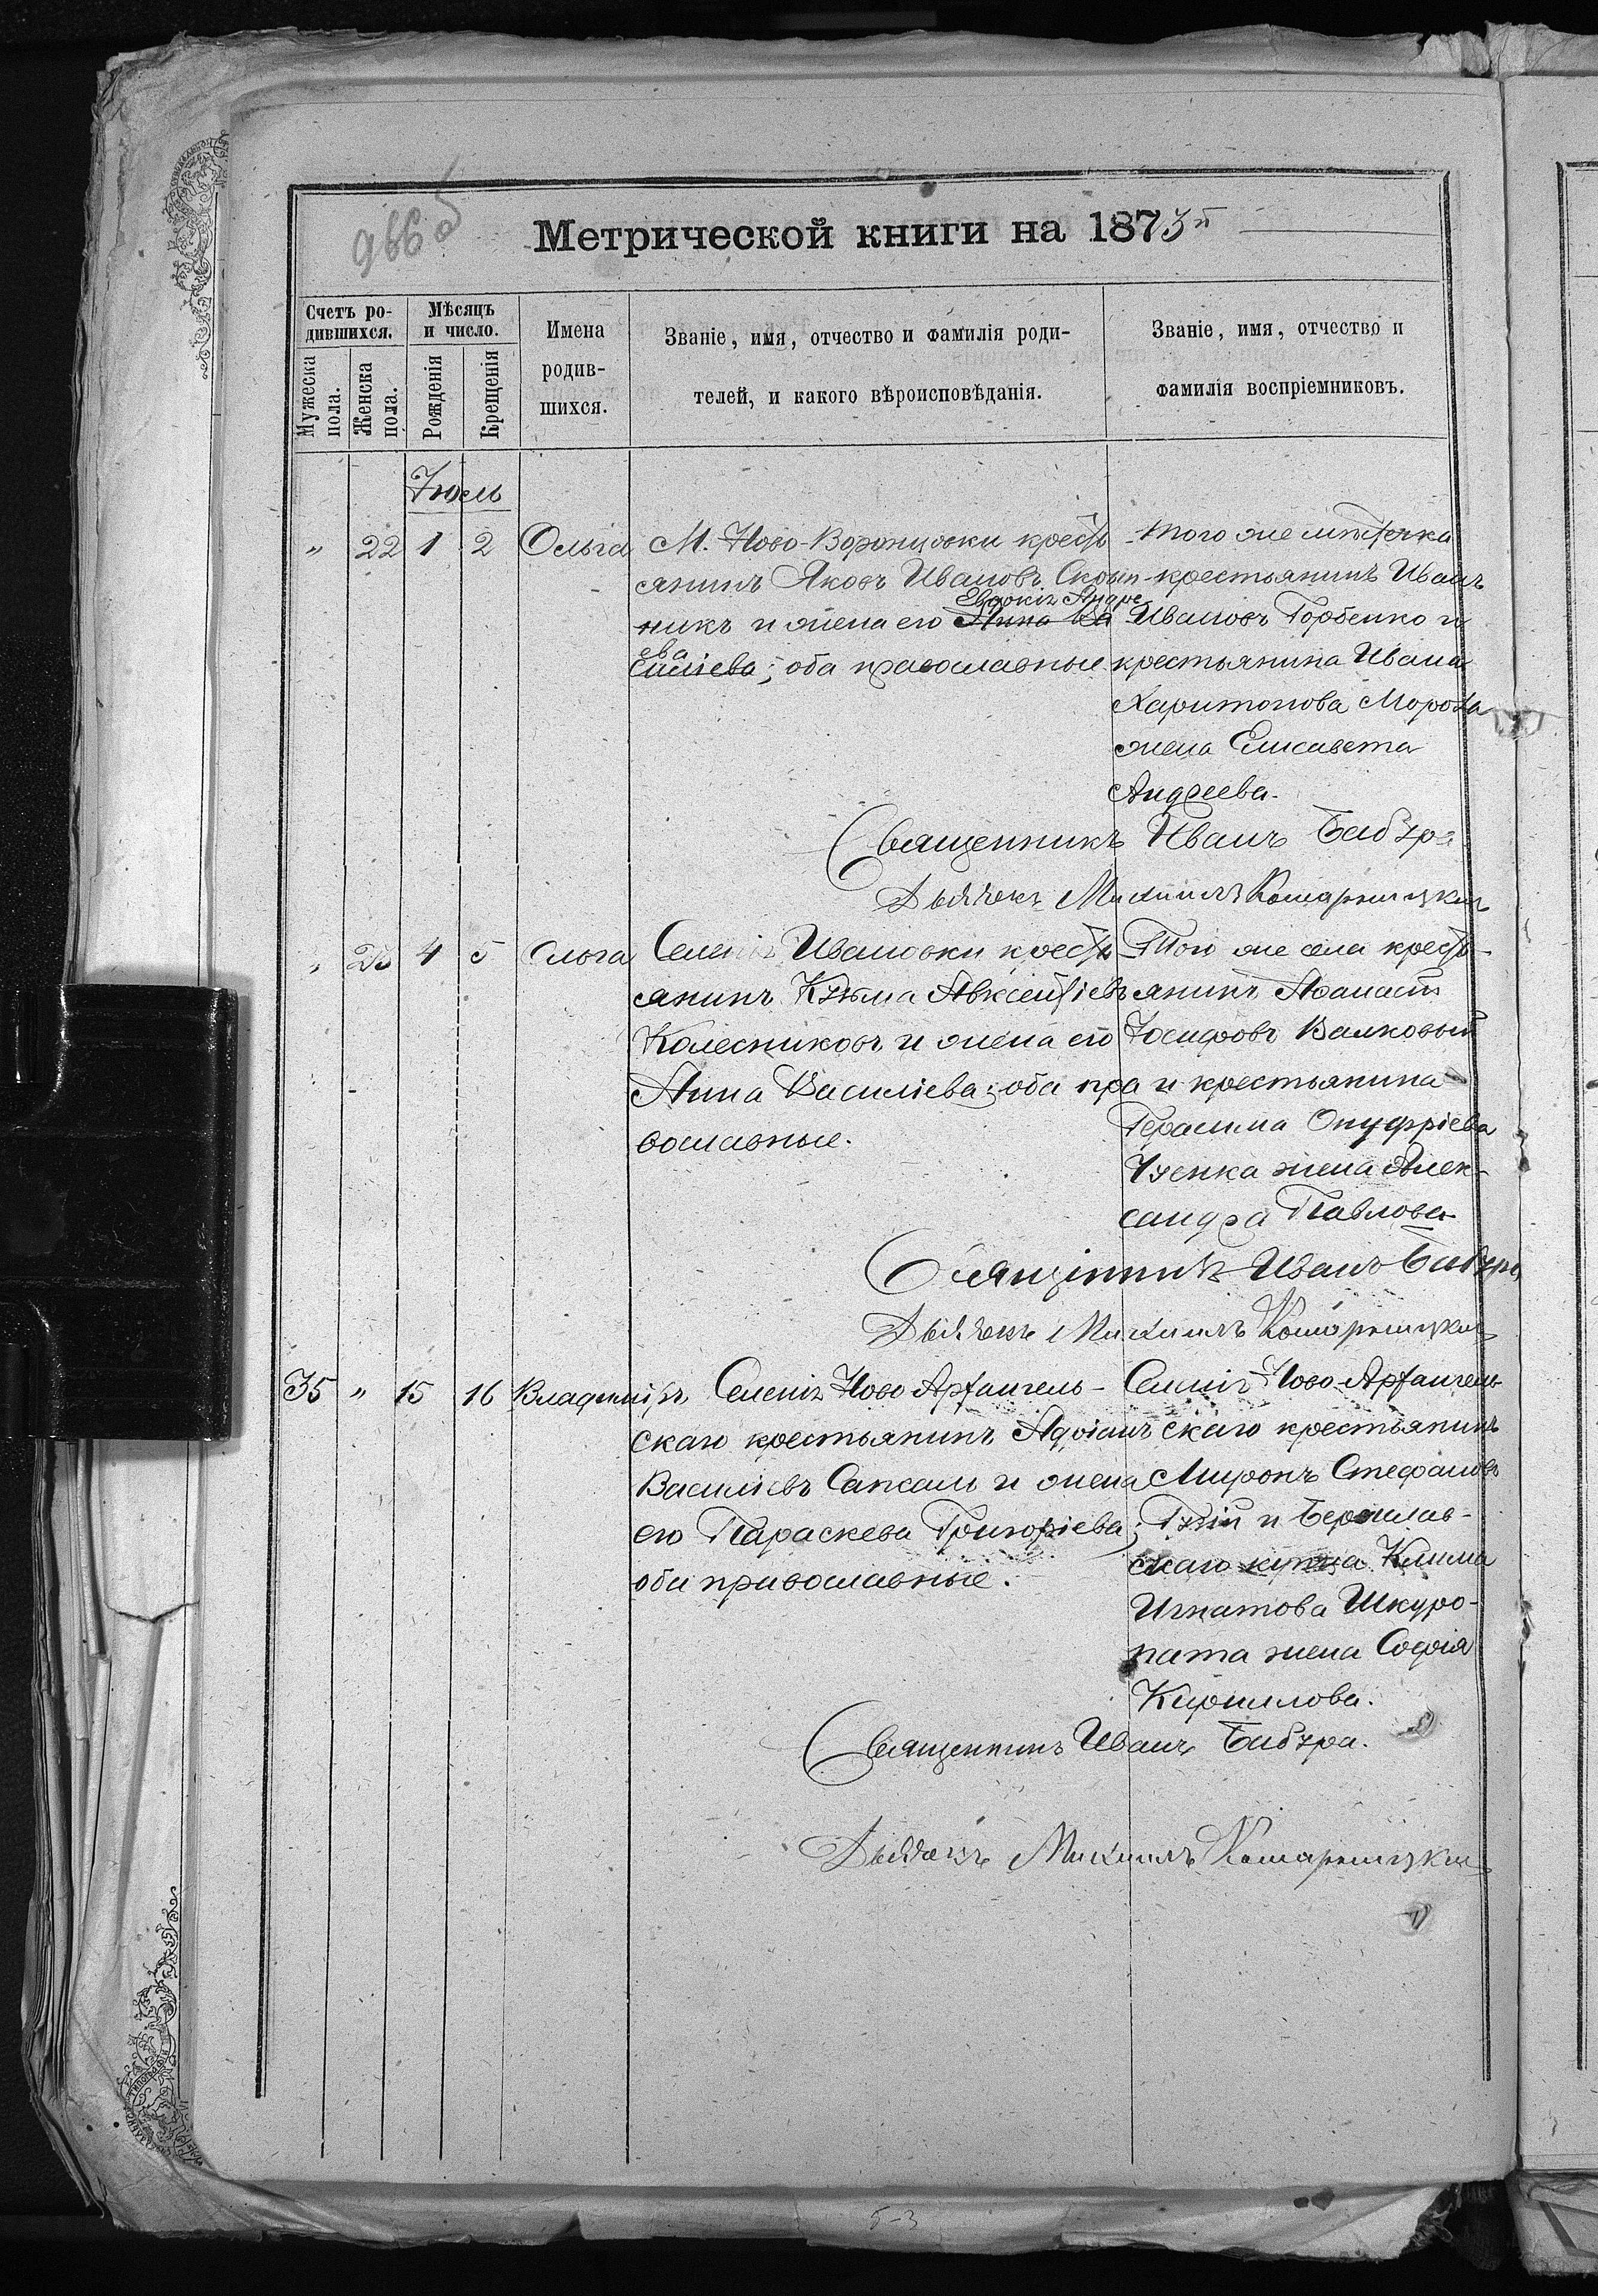 966 б
Метрической книги на 1873й
Счетъ ро-
дившихся.
Мужеска
пола.
Женска
пола.
Мѣсяцъ
и число.
Рожденія
Крещенія
Имена
родив-
шихся.
Званіе, имя, отчество и фамилія роди-
телей, и какого вѣроисповѣданія.
Званіе, имя, отчество и
фамилія воспріемниковъ.
Іюль
" 22 1 2 Ольга
М. Ново-Воронцовки кресть
янинъ Яковъ Ивановъ Скрып-
Евдокія Андре
никъ и жена его Анна Ва
ева
силіева; оба православные
того же мѣстечка
крестьянинъ Иванъ
Ивановъ Горбенко и
крестьянина Ивана
Харитонова Мороза
жена Елисавета
Андреева.
Священникъ Иванъ Бабура
Дьячекъ Михаилъ
" 23 4 5 Ольга
Селенія Ивановки кресть
янинъ Кузьма Авксентіевъ
Колесниковъ и жена его
Анна Василіева; оба пра
вославные.
Того же села кресть-
янинъ Афанасій
Іосифовъ Валковый
и крестьянина
Герасима Онуфріева
жена Алек-
сандра Павлова
Священникъ Иванъ Бабура
Дьячекъ Михаилъ
35 " 15 16 Владиміръ
Селенія Ново Архангель-
скаго крестьянинъ Адріанъ
Василіевъ Сапсай и жена
его Параскева Григоріева;
оба православные.
Селенія Ново-Архангель-
скаго крестьянинъ
Миронъ Стефановъ
и Берислав-
скаго купца Клима
Игнатова Шкуро-
пата жена Софія
Кирилова.
Священникъ Иванъ Бабура.
Дьячекъ Михаилъ
5-3